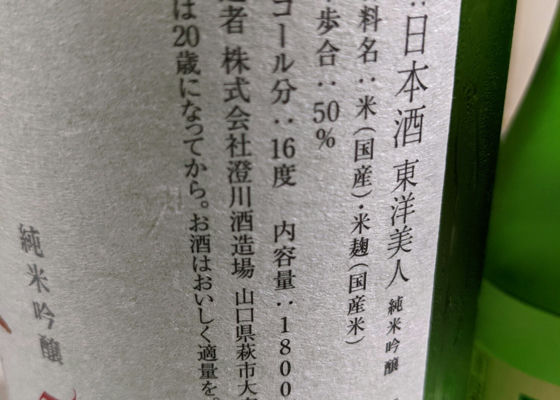 :日本酒 東洋美人 純米吟醸
料名:米(国産)・米麹(国産米)
歩合:50%
コール分:16度 内容量:1800
者 株式会社澄川酒造場 山口県萩市大
は20歳になってから。お酒はおいしく適量を
純米吟醸